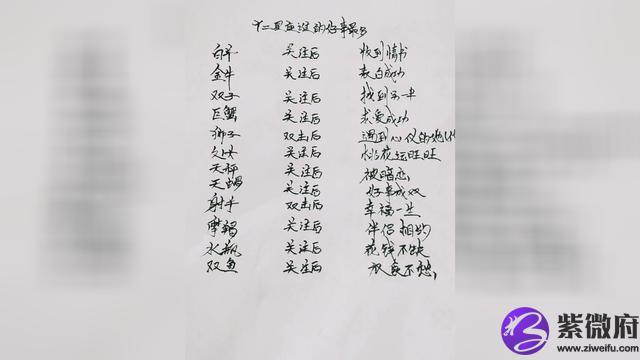 十二星座的好事最多
白羊 关注后 收到情书
金牛 关注后 表白成功
双子 关注后 找到另一半
巨蟹 关注后 求爱成功
狮子 双击后 遇到心仪的他
处女 关注后 桃花运旺旺
天秤 关注后 被暗恋
天蝎 关注后 好事成双
射手 双击后 幸福一生
摩羯 关注后 伴侣相约
水瓶 关注后 花钱不缺
双鱼 关注后 不愁
紫微府
www.ziweifu.com